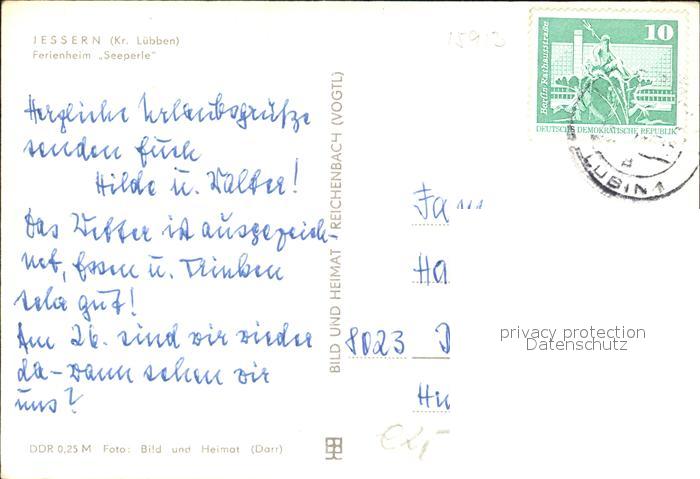 JESSERN (Kr. Lübben)
Ferienheim „Seeperle"
Herzliche Urlaubsgrüße
senden Euch
Hilde u. Walter!
Das Wetter ist ausgezeich-
net, Essen u. Trinken
sehr gut!
Am 26. sind wir wieder
da – wann sehen wir
uns?
DDR 0,25 M Foto: Bild und Heimat (Darr)
BILD UND HEIMAT REICHENBACH (VOGTL)
10
Berlin, Rathausstraße
DEUTSCHE DEMOKRATISCHE REPUBLIK
LUBIN 1
Fa
Ha
8023 D
privacy protection
Datenschutz